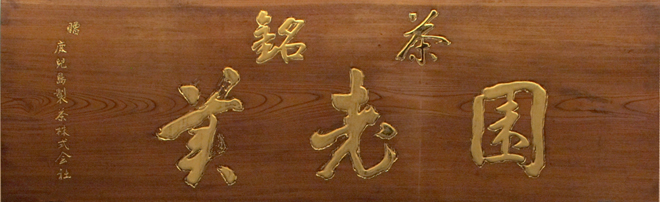 銘茶
美老園
贈
鹿児島製茶株式会社